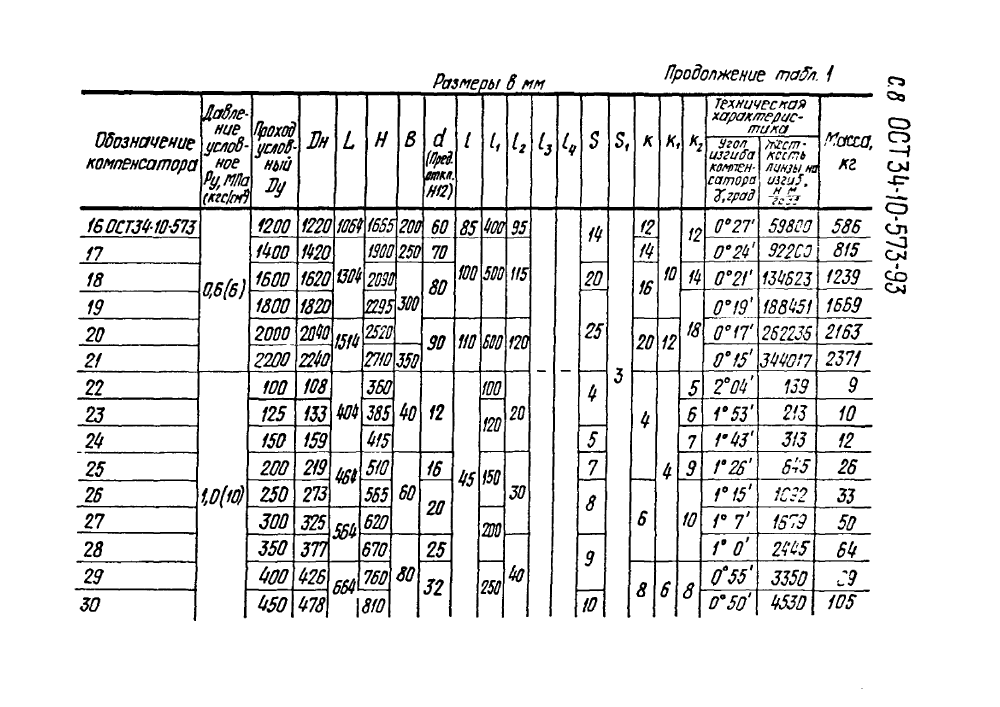 С.8 ОСТ 34-10-573-93
Продолжение табл. 1
Размеры в мм
Обозначение компенсатора | Давление условное Ру, МПа (кгс/см²) | Проход условный Dу | Dн | L | H | B | d (Пред. откл. H12) | l | l₁ | l₂ | l₃ | l₄ | S | S₁ | к | к₁ | к₂ | Техническая характеристика | Масса, кг
Угол изгиба компенсатора γ, град | Жесткость линзы на изгиб,
16 ОСТ34-10-573 | 0,6(6) | 1200 | 1220 | 1064 | 1665 | 200 | 60 | 85 | 400 | 95 | – | – | 14 | 3 | 12 | 10 | 12 | 0°27' | 59800 | 586
17 | 1400 | 1420 | 1304 | 1900 | 250 | 70 | 100 | 500 | 115 | 14 | 0°24' | 92200 | 815
18 | 1600 | 1620 | 2090 | 300 | 80 | 20 | 16 | 14 | 0°21' | 134623 | 1239
19 | 1800 | 1820 | 2295 | 25 | 18 | 0°19' | 188451 | 1669
20 | 2000 | 2040 | 1514 | 2520 | 90 | 110 | 600 | 120 | 20 | 12 | 0°17' | 262236 | 2163
21 | 2200 | 2240 | 2710 | 350 | 0°15' | 344017 | 2371
22 | 1,0(10) | 100 | 108 | 404 | 360 | 40 | 12 | 45 | 100 | 20 | 4 | 4 | 4 | 5 | 2°04' | 139 | 9
23 | 125 | 133 | 385 | 120 | 6 | 1°53' | 213 | 10
24 | 150 | 159 | 415 | 5 | 7 | 1°43' | 313 | 12
25 | 200 | 219 | 464 | 510 | 60 | 16 | 150 | 30 | 7 | 9 | 1°26' | 645 | 26
26 | 250 | 273 | 565 | 20 | 8 | 6 | 10 | 1°15' | 33
27 | 300 | 325 | 564 | 620 | 200 | 1°7' | 1679 | 50
28 | 350 | 377 | 670 | 80 | 25 | 40 | 9 | 1°0' | 2445 | 64
29 | 400 | 426 | 664 | 760 | 32 | 250 | 8 | 6 | 8 | 0°55' | 3350
30 | 450 | 478 | 810 | 10 | 0°50' | 4530 | 105